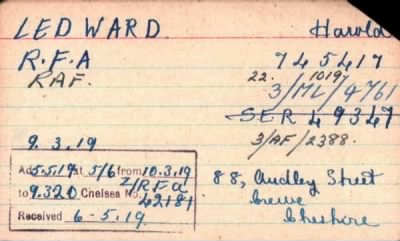 LEDWARD. Harold
R.F.A 745417
RAF. 22. 1019
3/ML/9761
SER 49347
9.3.19 3/AF/2388.
Ad 5.5.19 at 5/6 from 10.3.19
to 9.3.20 Chelsea No. Z/RFA 42181
Received 6-5.19.
88, Audley Street
Crewe
Cheshire